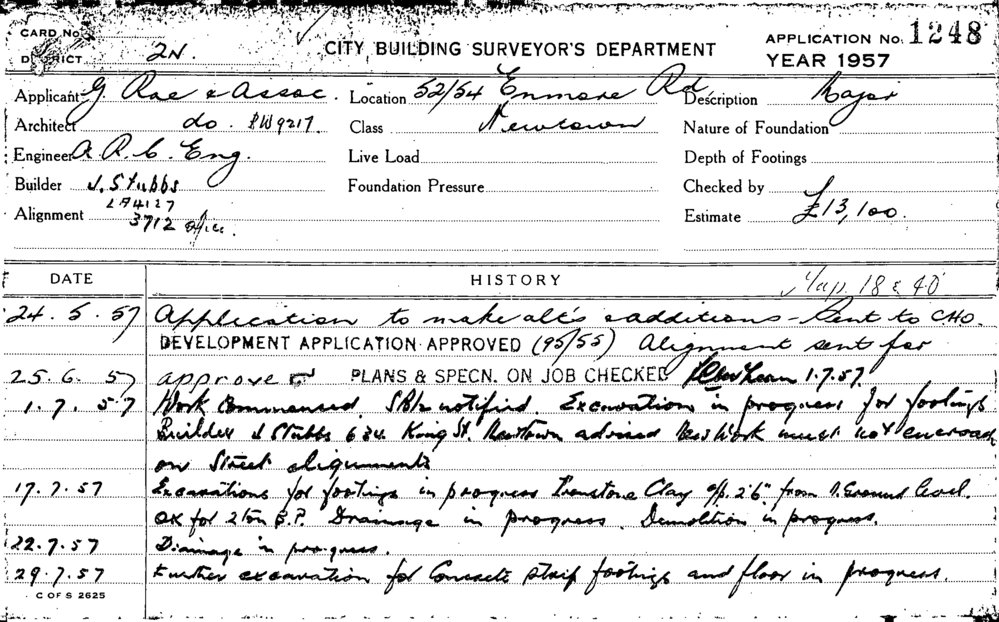 CARD No.
CITY BUILDING SURVEYOR'S DEPARTMENT
APPLICATION No. 1248
DISTRICT 2N.
YEAR 1957
Applicant G Rae & Assoc. Location 52/54 Enmore Rd, Description Major
Architect do. LW9217. Class Newtown Nature of Foundation
Engineer A.R.C. Eng. Live Load Depth of Footings
Builder J. Stubbs Foundation Pressure Checked by
LA4127
Alignment 3712 Estimate £13,100.
DATE HISTORY Map 18 & 40
24.5.57 Application to make alt's & additions - Sent to C.H.O.
DEVELOPMENT APPLICATION APPROVED (95/55) Alignment sent for
25.6.57 approved PLANS & SPECN. ON JOB CHECKED 1.7.57.
1.7.57 Work Commenced. notified. Excavations in progress for footings
Builder J Stubbs 634 King St. Newtown advised New Work must not encroach
on Street alignments
17.7.57 Excavations for footings in progress Ironstone Clay app. 2'6" from N. Ground Level.
OK for 2 ton B.P. Drainage in progress. Demolition in progress.
22.7.57 Drainage in progress.
29.7.57 Further excavation for Concrete strip footings and floor in progress.
C OF S 2625